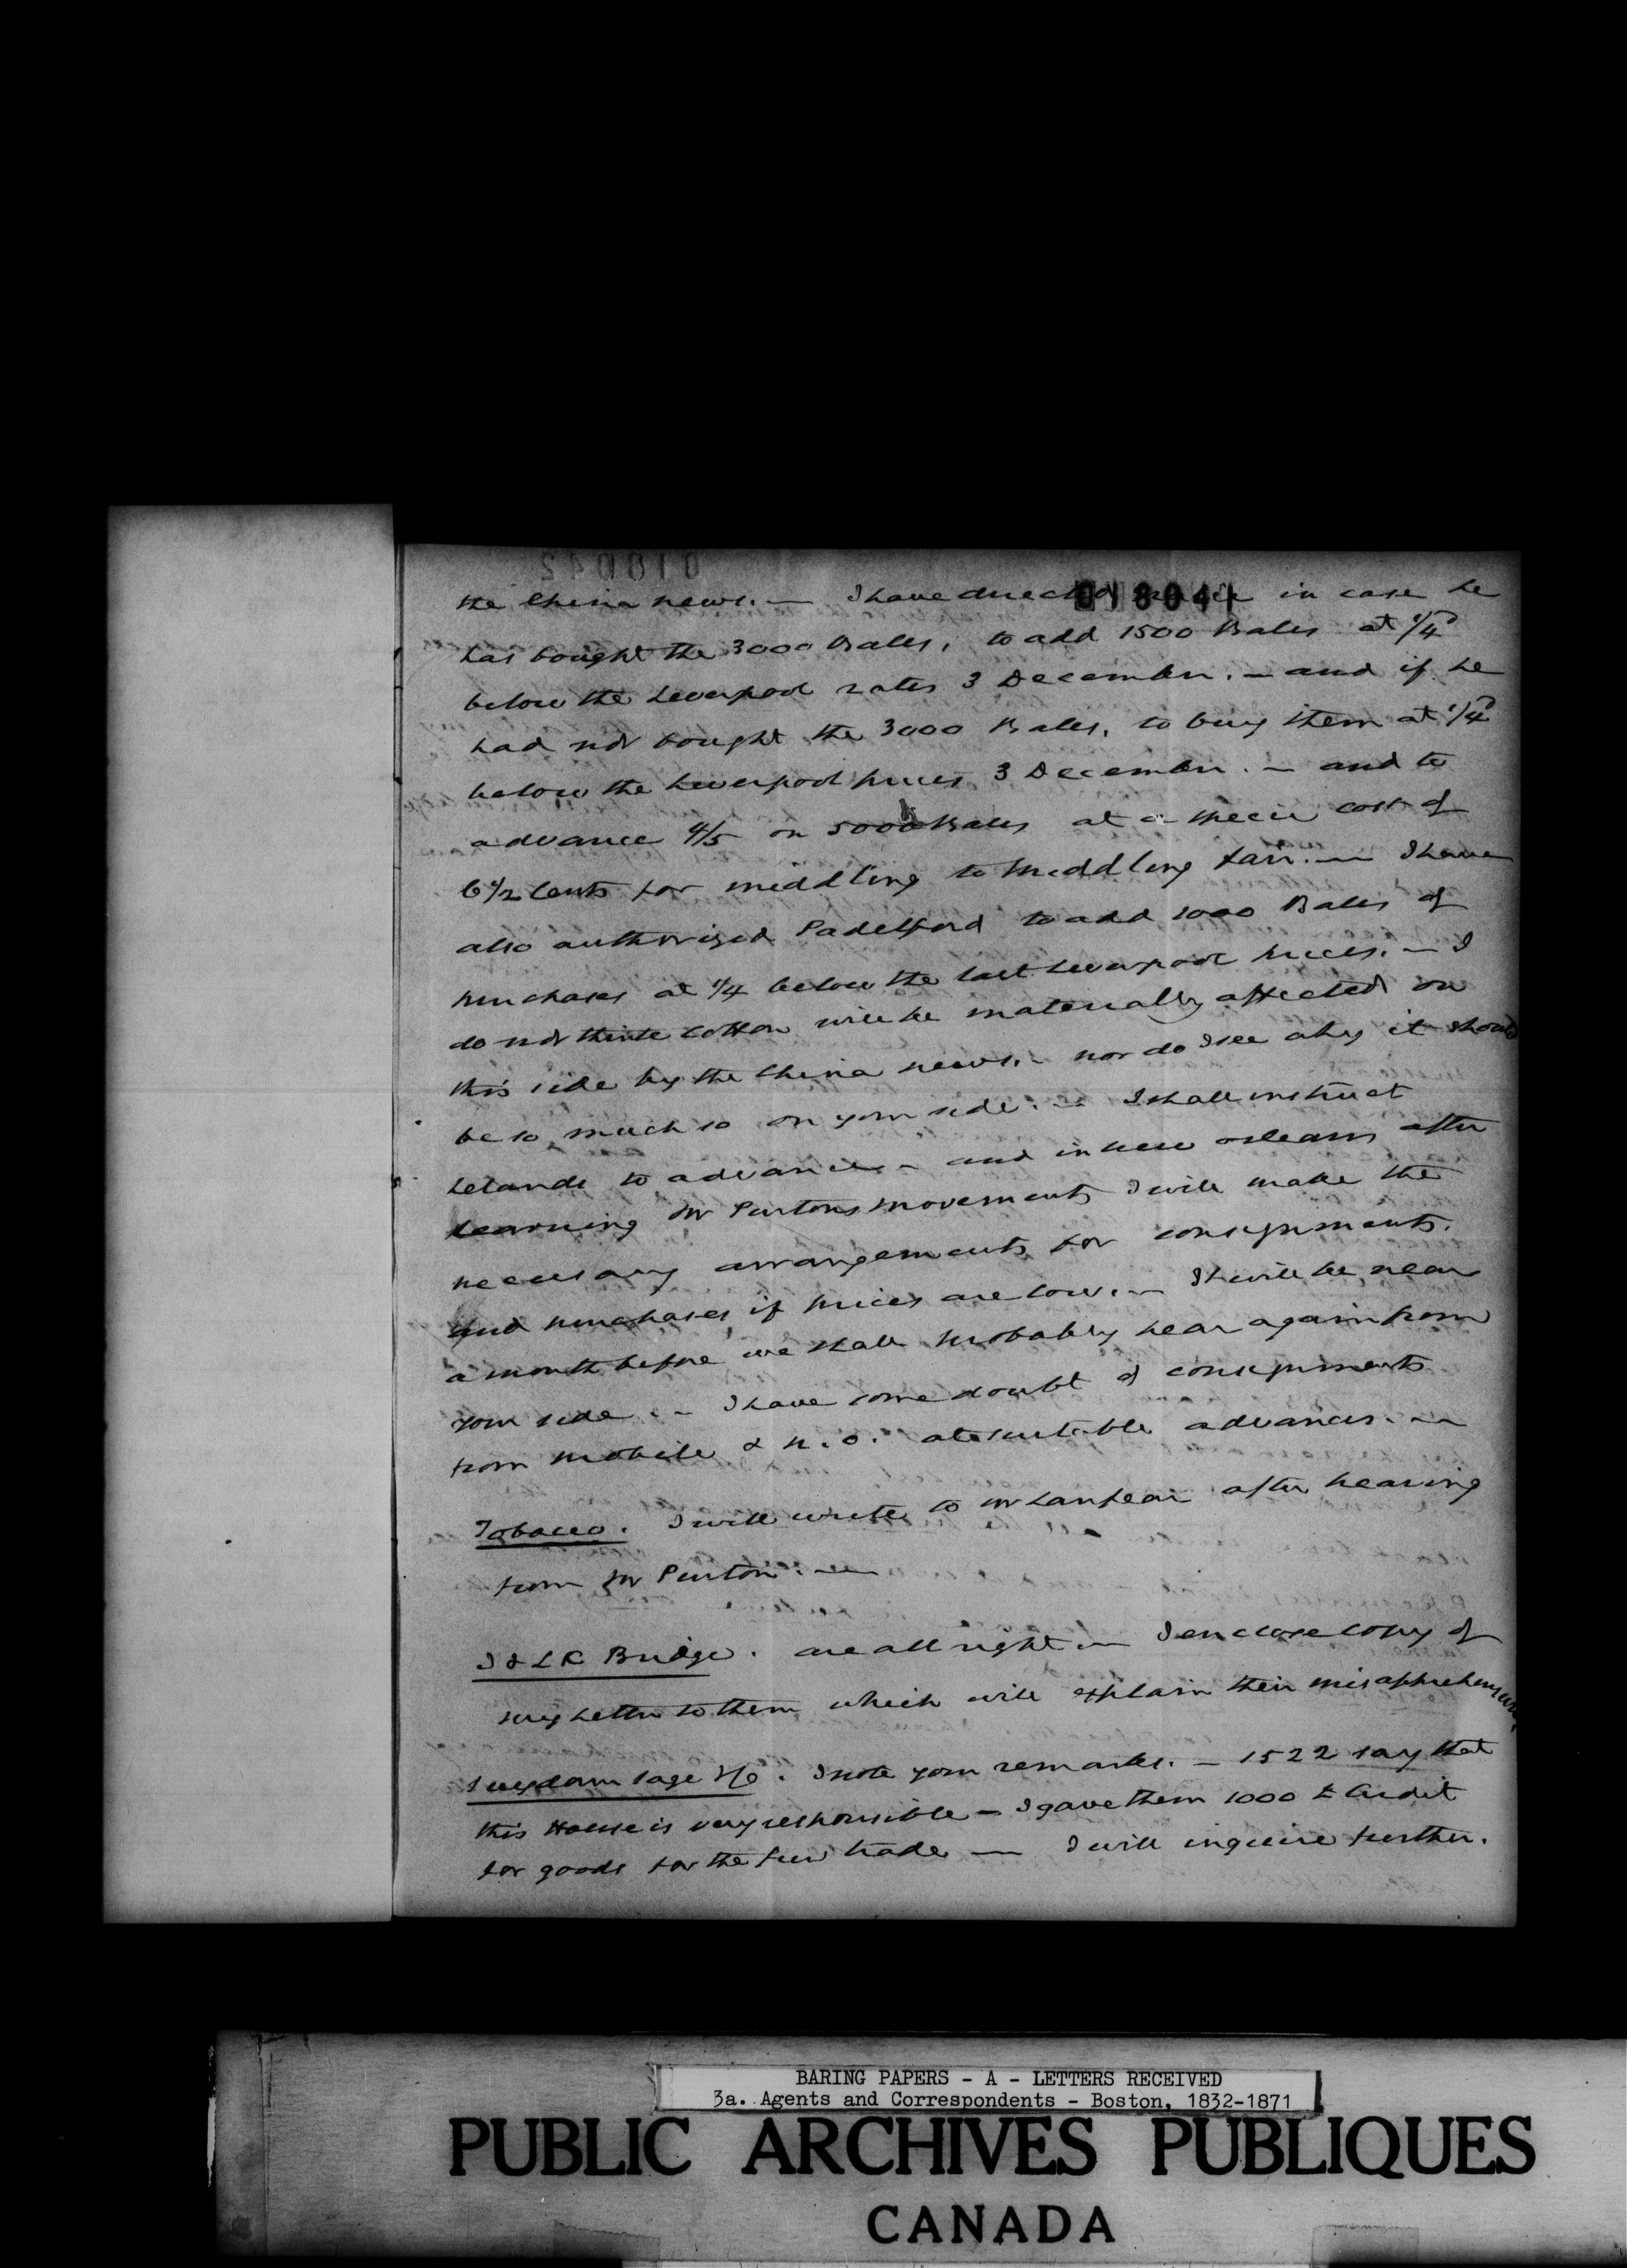 018042
018041
the China news. — I have directed in case he
has bought the 3000 Bales, to add 1500 Bales at 1/4d
below the Liverpool rates 3 December. — and if he
had not bought the 3000 Bales, to buy them at 1/4d
below the Liverpool prices 3 December. — and to
advance 4/5 on 5000 Bales at a specie cost of
6 1/2 cents for middling to middling fair. — I have
also authorized Padelford to add 1000 Bales of
purchases at 1/4 below the last Liverpool prices. — I
do not think cotton will be materially affected on
this side by the China news. — nor do I see why it should
be so much so on your side. — I shall instruct
to advance — and in New Orleans after
learning Mr Purtons movements I will make the
necessary arrangements for consignments.
and purchases if prices are low. — It will be near
a month before we shall probably hear again from
your side. — I have some doubt of consignments
from Mobile & N. O. at suitable advances. —
Tobacco. I will write to Mr Lanfear after hearing
from Mr Purton. —
J & L K Bridge. are all right — I enclose copy of
my letter to them which will explain their misapprehension
Suydam Sage & Co. I note your remarks. — 1522 say that
this House is very responsible — I gave them 1000 £ Credit
for goods for the fur trade — I will inquire further.
BARING PAPERS - A - LETTERS RECEIVED
3a. Agents and Correspondents - Boston, 1832-1871
PUBLIC ARCHIVES PUBLIQUES
CANADA